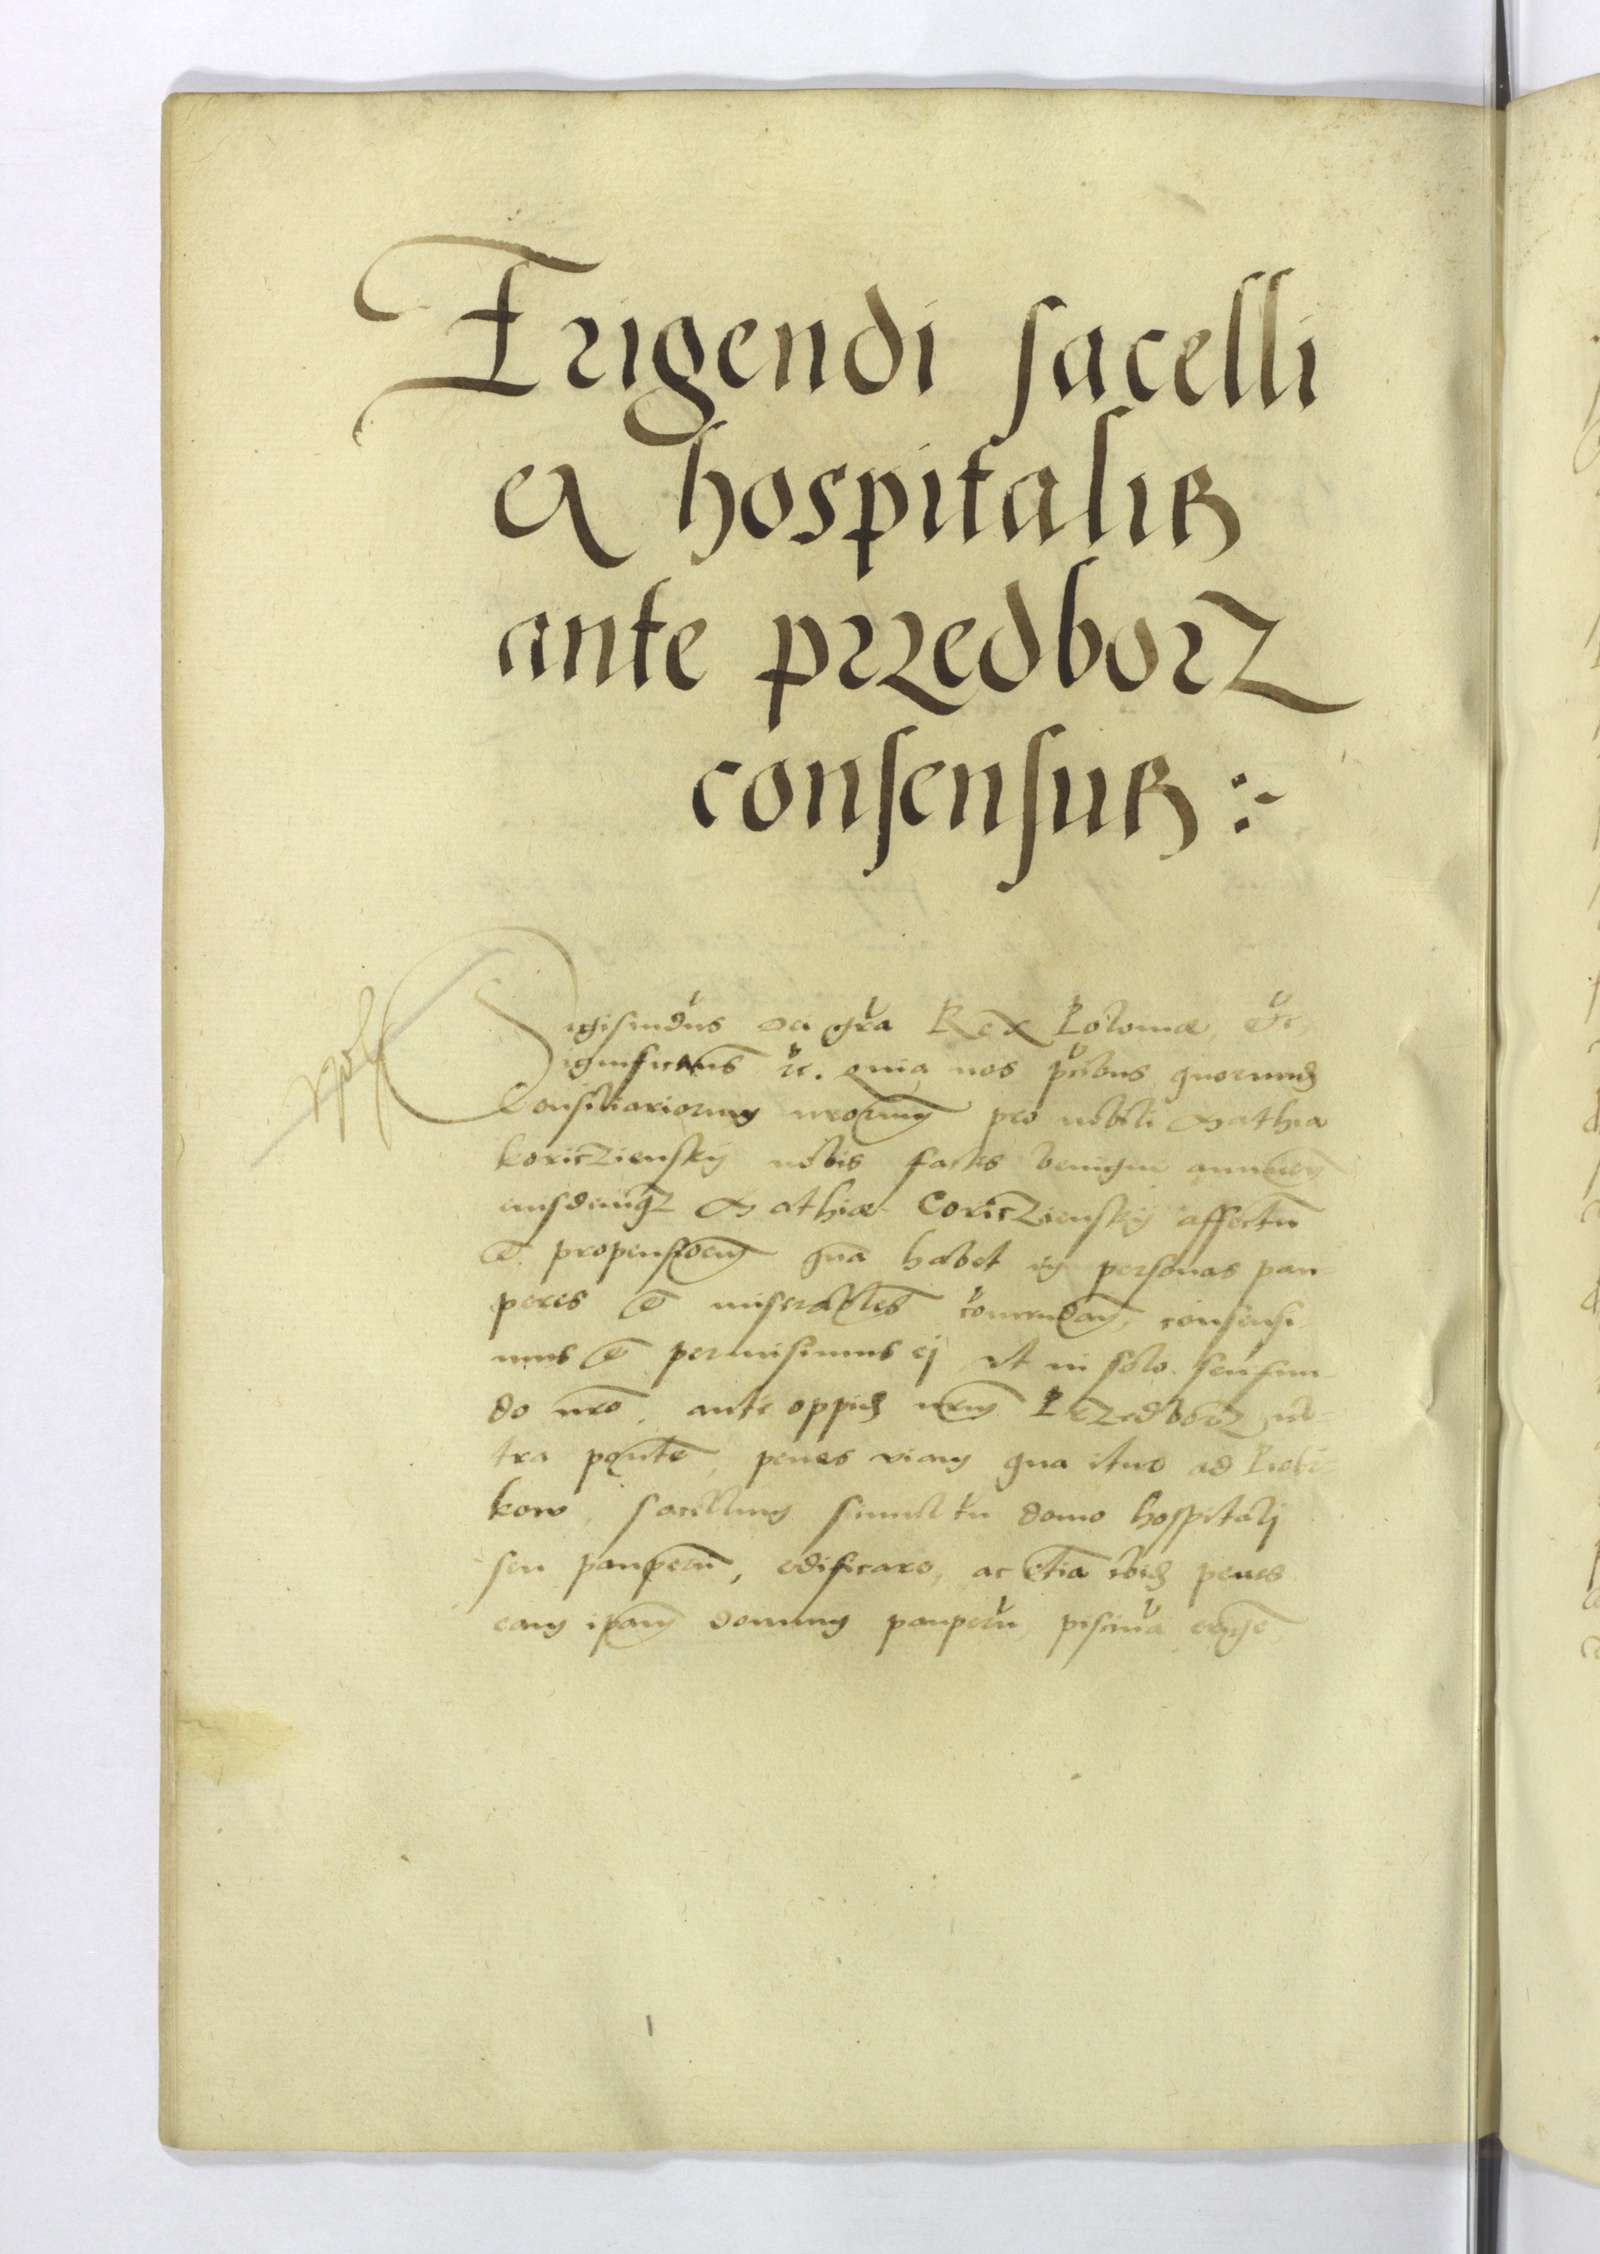 Erigendi sacelli
et hospitalis
ante przedborz
consensus
Sigismūdus dei gr̃a Rex Poloniæ, etc,
significamus etc. quia nos p̃cibus quorumd
Consiliariorum nr̃orum pro nobili Mathia
koricziensky nobis factis benigne annuen
eiusdemq3 Mathiæ Coricziensky affectū
et propensioem quā habet in personas pau-
peres et miserabiles comendan, consensi
mus et permisimus ej ut in solo seu fun-
do nr̃o, ante oppid nr̃um Przedborz ul-
tra pontē, penes viam qua itur ad Piotr-
kow, sacellum simul cū domo hospitalj
seu pauperū, edificare, ac etiā ibid penes
eam ipam domum pauperū piscinā erige